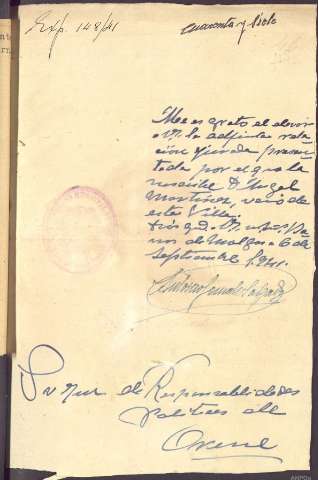 Exp. 148/41
Cuarenta y siete
Me es grato el elevar
a V. la adjunta rela
ción jurada presen
tada por el que la
suscribe D. Angel
Martinez, vecino de
esta Villa.
Dios gde. a V.
de Molgas a 6 de
Septiembre 1.941.
Sr Juez de Responsabilidades
Politicas de
Orense